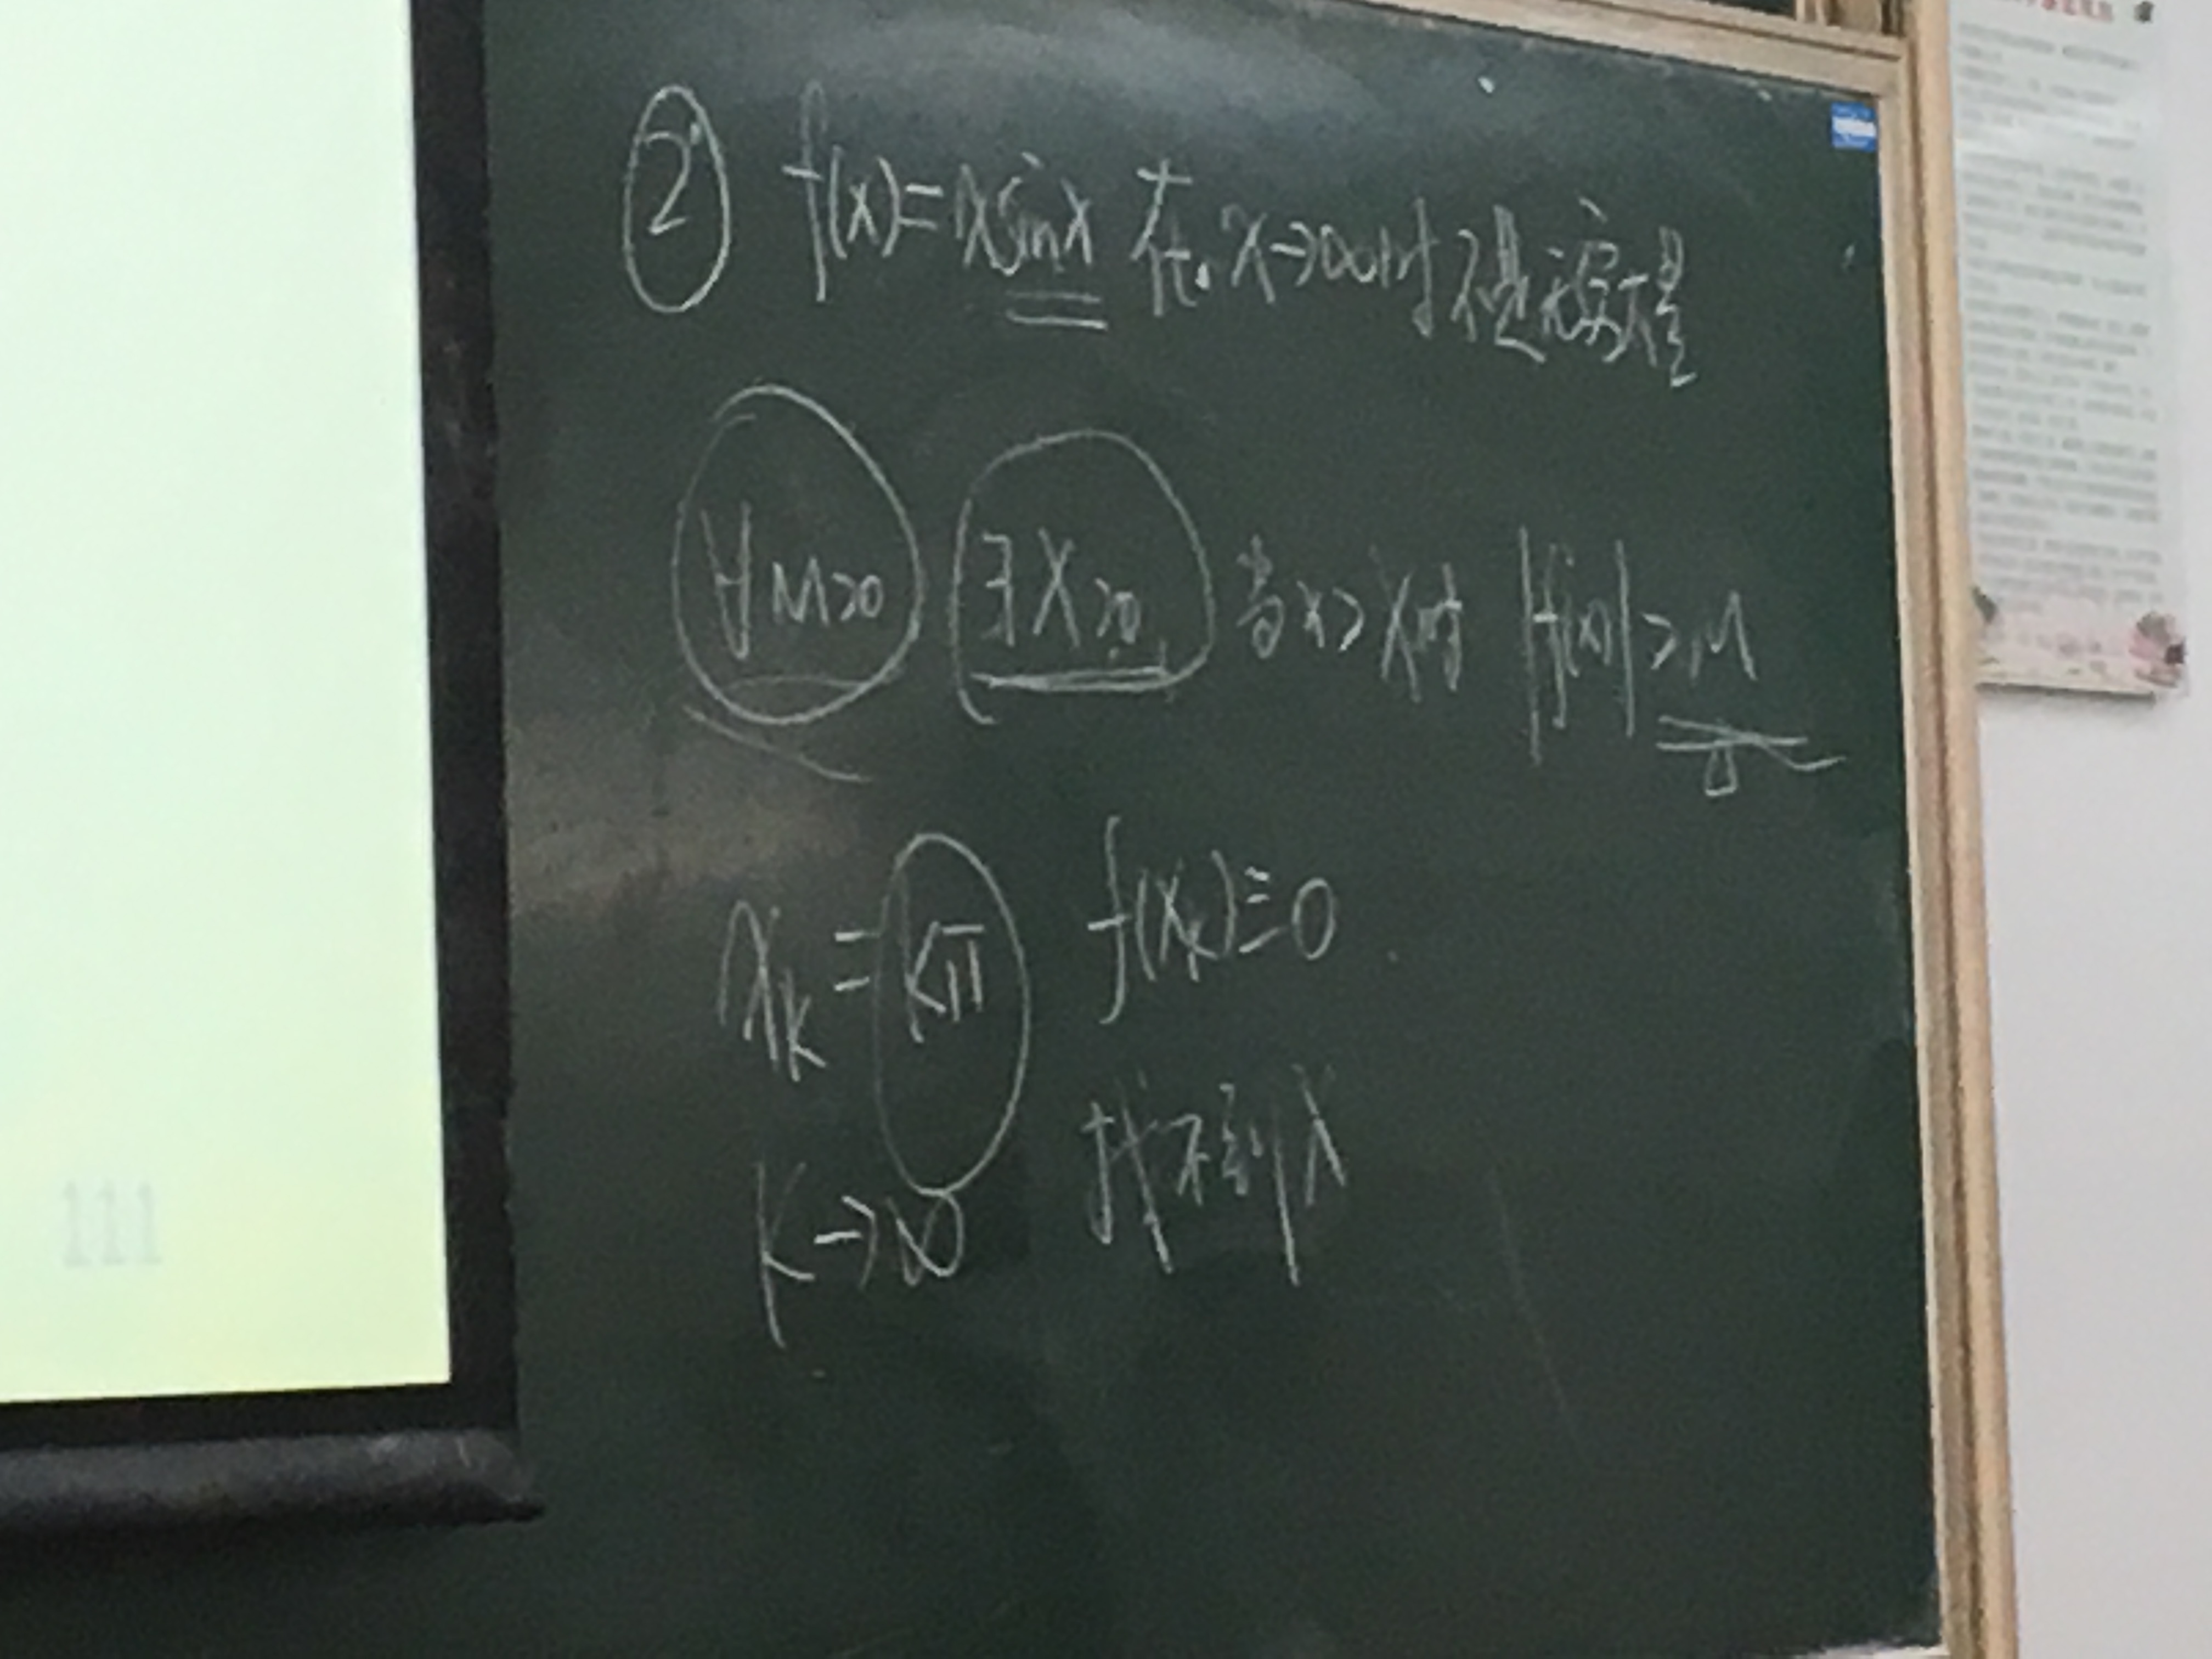 ② f(x)=xsinx 在x→∞时不是无穷大量
∀M>0 ∃X>0 当x>X时 |f(x)|>M
x_k=kπ f(x_k)≡0
k→∞ 找不到X
111